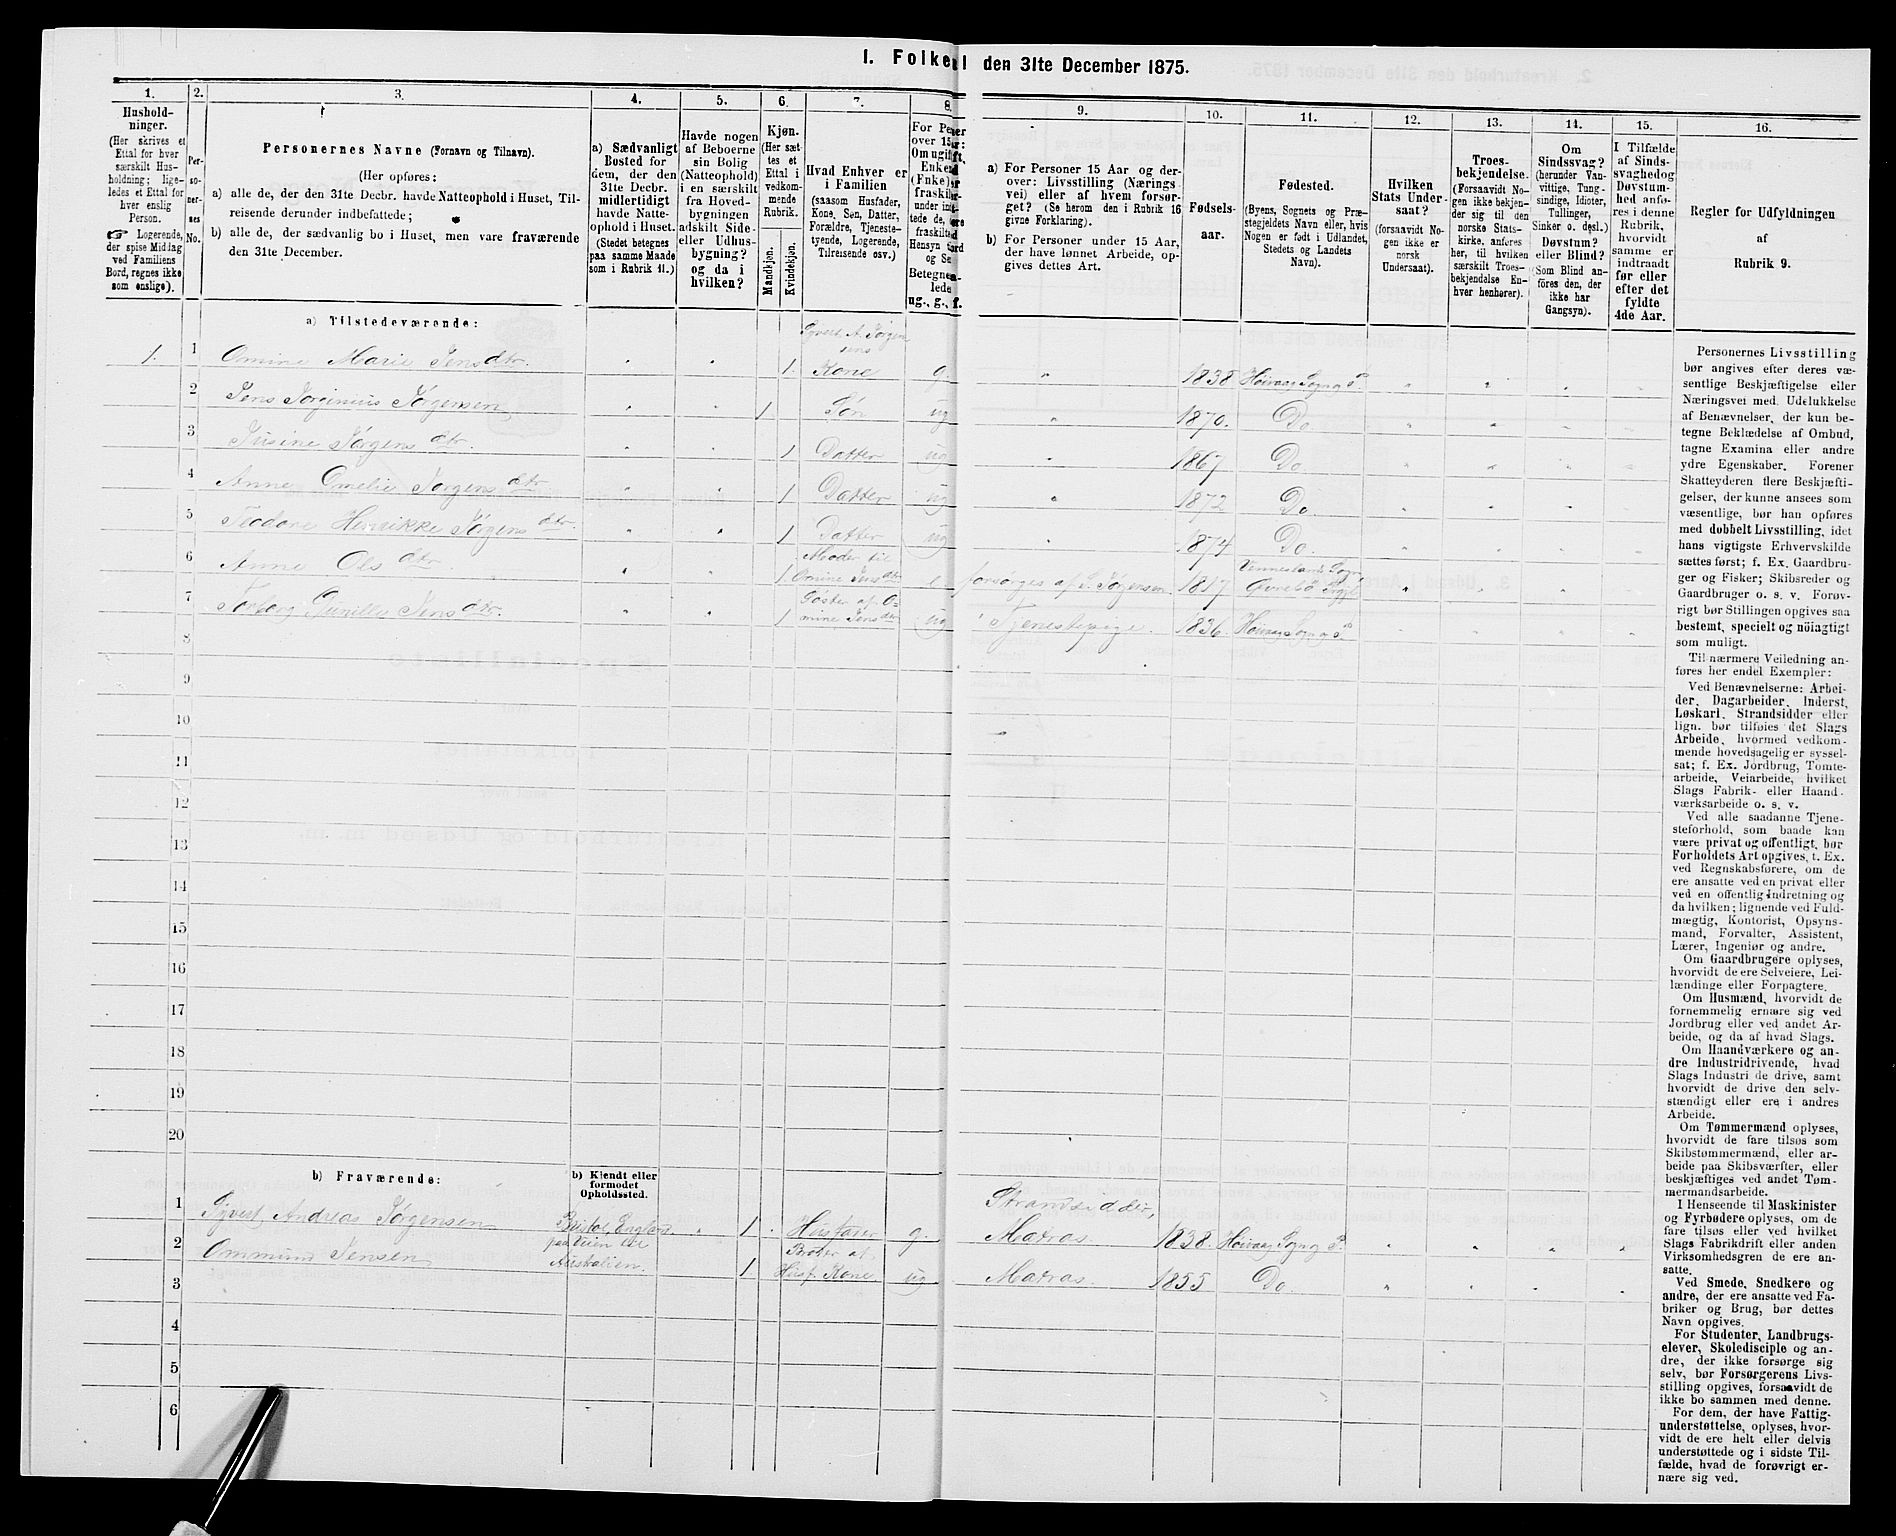 1. Folketal den 31te December 1875.
1.
Hushold-
ninger.
(Her skrives et
Ettal for hver
særskilt Hus-
holdning; lige-
ledes et Ettal for
hver enslig
Person.
☞ Logerende,
der spise Middag
ved Familiens
Bord, regnes ikke
som enslige).
2.
Per-
so-
ner-
nes
No.
3.
Personernes Navne (Fornavn og Tilnavn).
(Her opføres:
a) alle de, der den 31te Decbr. havde Natteophold i Huset, Til-
reisende derunder indbefattede;
b) alle de, der sædvanlig bo i Huset, men vare fraværende
den 31te December.
4.
a) Sædvanligt
Bosted for
dem, der den
31te Decbr.
midlertidigt
havde Natte-
ophold i Huset.
(Stedet betegnes
paa samme Maade
som i Rubrik 11.)
5.
Havde nogen
af Beboerne
sin Bolig
(Natteophold)
i en særskilt
fra Hoved-
bygningen
adskilt Side-
eller Udhus-
bygning?
og da i
hvilken?
6.
Kjøn.
(Her sæt-
tes et
Ettal i
vedkom-
mende
Rubrik.
Mandkjøn.
Kvindekjøn.
7.
Hvad Enhver er
i Familien
(saasom Husfader,
Kone, Søn, Datter,
Forældre, Tjeneste-
tyende, Logerende,
Tilreisende osv.)
8.
9.
a) For Personer 15 Aar og der-
over: Livsstilling (Nærings-
vei) eller af hvem forsør-
get? (Se herom den i Rubrik 16
givne Forklaring).
b) For Personer under 15 Aar,
der have lønnet Arbeide, op-
gives dettes Art.
10.
Fødsels-
aar.
11.
Fødested.
(Byens, Sognets og Præ-
stegjeldets Navn eller, hvis
Nogen er født i Udlandet,
Stedets og Landets
Navn).
12.
Hvilken
Stats Under-
saat?
(forsaavidt No-
gen ikke er
norsk
Undersaat).
13.
Troes-
bekjendelse.
(Forsaavidt No-
gen ikke bekjen-
der sig til den
norske Stats-
kirke, anføres
her, til hvilken
særskilt Troes-
bekjendelse En-
hver henhører).
14.
Om
Sindssvag?
(herunder Van-
vittige, Tung-
sindige, Idioter,
Tullinger,
Sinker o. desl.)
Døvstum?
eller Blind?
(Som Blind an-
føres den, der
ikke har
Gangsyn).
15.
I Tilfælde
af Sinds-
svaghed og
Døvstum-
hed anfø-
res i denne
Rubrik,
hvorvidt
samme er
indtraadt
før eller
efter det
fyldte
4de Aar.
16.
Regler for Udfyldningen
af
Rubrik 9.
a) Tilstedeværende:
1. 1 Omine Marie Jensdtr. 1. Syvert A. Jørgen
sens
Kone g. 1838 Høivaag Sogn & P.
2 Jens Jørginius Jørgensen 1. Søn ug 1870. Do.
3 Jusine Jørgensdtr. 1 Datter ug 1867 Do.
4 Anne Omelie Jørgensdtr 1 Datter ug 1872 Do.
5 Teodore Henrikke Jørgensdtr. 1 Datter ug 1874 Do.
6 Anne Olsdtr 1. Moder til
Omine Jensdtr e. forsørges af S. Jørgensen 1817 Venneslands Sogn
Øvrebø Prgjl
7 Torborg Gunille Jensdtr. 1 Søster af O-
mine Jensdtr ug Tjenestepige. 1836. Høivaag Sogn & P
8
9
10
11
12
13
14
15
16
17
18
19
20
b) Fraværende:
b) Kjendt eller
formodet
Opholdssted.
1 Syvert Andreas Jørgensen Bristol, England 1 Husfader g. Strandsidder,
Matros. 1838. Høivaag Sogn & P.
2 Ommund Jensen paa Veien til
Australien. 1 Broder af
Husf. Kone ug Matros. 1855 Do.
3
4
5
6
Personernes Livsstilling
bør angives efter deres væ-
sentlige Beskjæftigelse eller
Næringsvei med Udelukkelse
af Benævnelser, der kun be-
tegne Beklædelse af Ombud,
tagne Examina eller andre
ydre Egenskaber. Forener
Skatteyderen flere Beskjæfti-
gelser, der kunne ansees som
væsentlige, bør han opføres
med dobbelt Livsstilling, idet
hans vigtigste Erhvervskilde
sættes først; f. Ex. Gaardbru-
ger og Fisker; Skibsreder og
Gaardbruger o. s. v. Forøv-
rigt bør Stillingen opgives saa
bestemt, specielt og nöiagtigt
som muligt.
Til nærmere Veiledning an-
føres her endel Exempler:
Ved Benævnelserne: Arbei-
der, Dagarbeider, Inderst,
Løskarl, Strandsidder eller
lign. bør tilføies det Slags
Arbeide, hvormed vedkom-
mende hovedsagelig er syssel-
sat; f. Ex. Jordbrug, Tomte-
arbeide, Veiarbeide, hvilket
Slags Fabrik- eller Haand-
værksarbeide o. s. v.
Ved alle saadanne Tjene-
steforhold, som baade kan
være privat og offentligt, bør
Forholdets Art opgives, t. Ex.
ved Regnskabsførere, om de
ere ansatte ved en privat eller
ved en offentlig Indretning og
da hvilken; lignende ved Fuld-
mægtig, Kontorist, Opsyns-
mand, Forvalter, Assistent,
Lærer, Ingeniør og andre.
Om Gaardbrugere oplyses,
hvorvidt de ere Selveiere, Lei-
lændinge eller Forpagtere.
Om Husmænd, hvorvidt de
fornemmelig ernære sig ved
Jordbrug eller ved andet Ar-
beide, og da af hvad Slags.
Om Haandværkere og an-
dre Industridrivende, hvad
Slags Industri de drive, samt
hvorvidt de drive den selv-
stændigt eller ere i andres
Arbeide.
Om Tømmermænd oplyses,
hvorvidt de fare tilsøs som
Skibstømmermænd, eller ar-
beide paa Skibsværfter, eller
beskjæftiges ved andet Tøm-
mermandsarbeide.
I Henseende til Maskinister
og Fyrbødere oplyses, om de
fare tilsøs eller ved hvilket
Slags Fabrikdrift eller anden
Virksomhedsgren de ere an-
satte.
Ved Smede, Snedkere og
andre, der ere ansatte ved Fa-
briker og Brug, bør dettes
Navn opgives.
For Studenter, Landbrugs-
elever, Skoledisciple og an-
dre, der ikke forsørge sig
selv, bør Forsørgerens Livs-
stilling opgives, forsaavidt de
ikke bo sammen med denne.
For dem, der have Fattig-
understøttelse, oplyses, hvor-
vidt de ere helt eller delvis
understøttede og i sidste Til-
fælde, hvad de forøvrigt er-
nære sig ved.